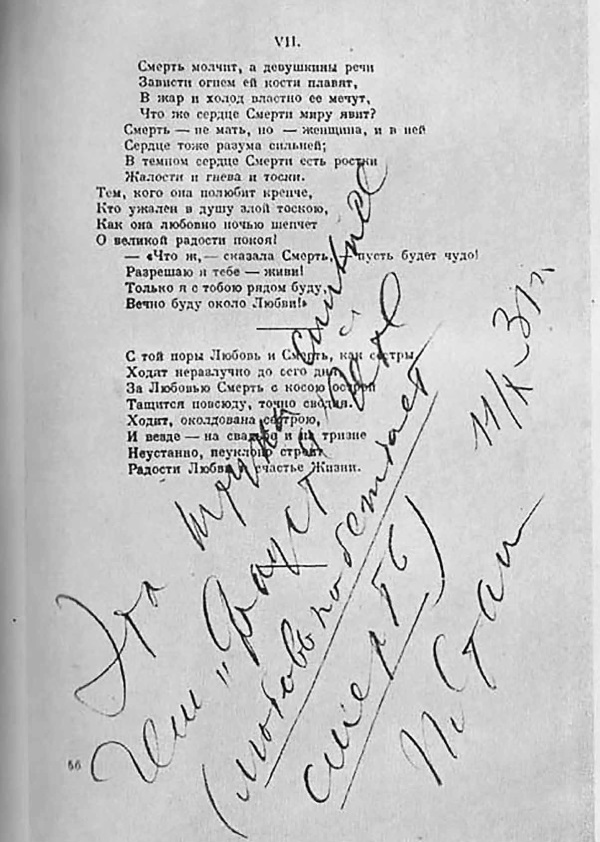 VII.
Смерть молчит, а девушкины речи
Зависти огнем ей кости плавят,
В жар и холод властно ее мечут,
Что же сердце Смерти миру явит?
Смерть — не мать, но — женщина, и в ней
Сердце тоже разума сильней;
В темном сердце Смерти есть ростки
Жалости и гнева и тоски.
Тем, кого она полюбит крепче,
Кто ужален в душу злой тоскою,
Как она любовно ночью шепчет
О великой радости покоя!
— «Что ж, — сказала Смерть, — пусть будет чудо!
Разрешаю я тебе — живи!
Только я с тобою рядом буду,
Вечно буду около Любви!»
С той поры Любовь и Смерть, как сестры,
Ходят неразлучно до сего дня,
За Любовью Смерть с косою острой
Тащится повсюду, точно сводня.
Ходит, околдована сестрою,
И везде — на свадьбе и на тризне
Неустанно, неуклонно строит
Радости Любви и счастье Жизни.
Эта штука сильнее
чем „Фауст" Гете
(любовь побеждает
смерть)
И. Сталин
11/X-31 г.
66